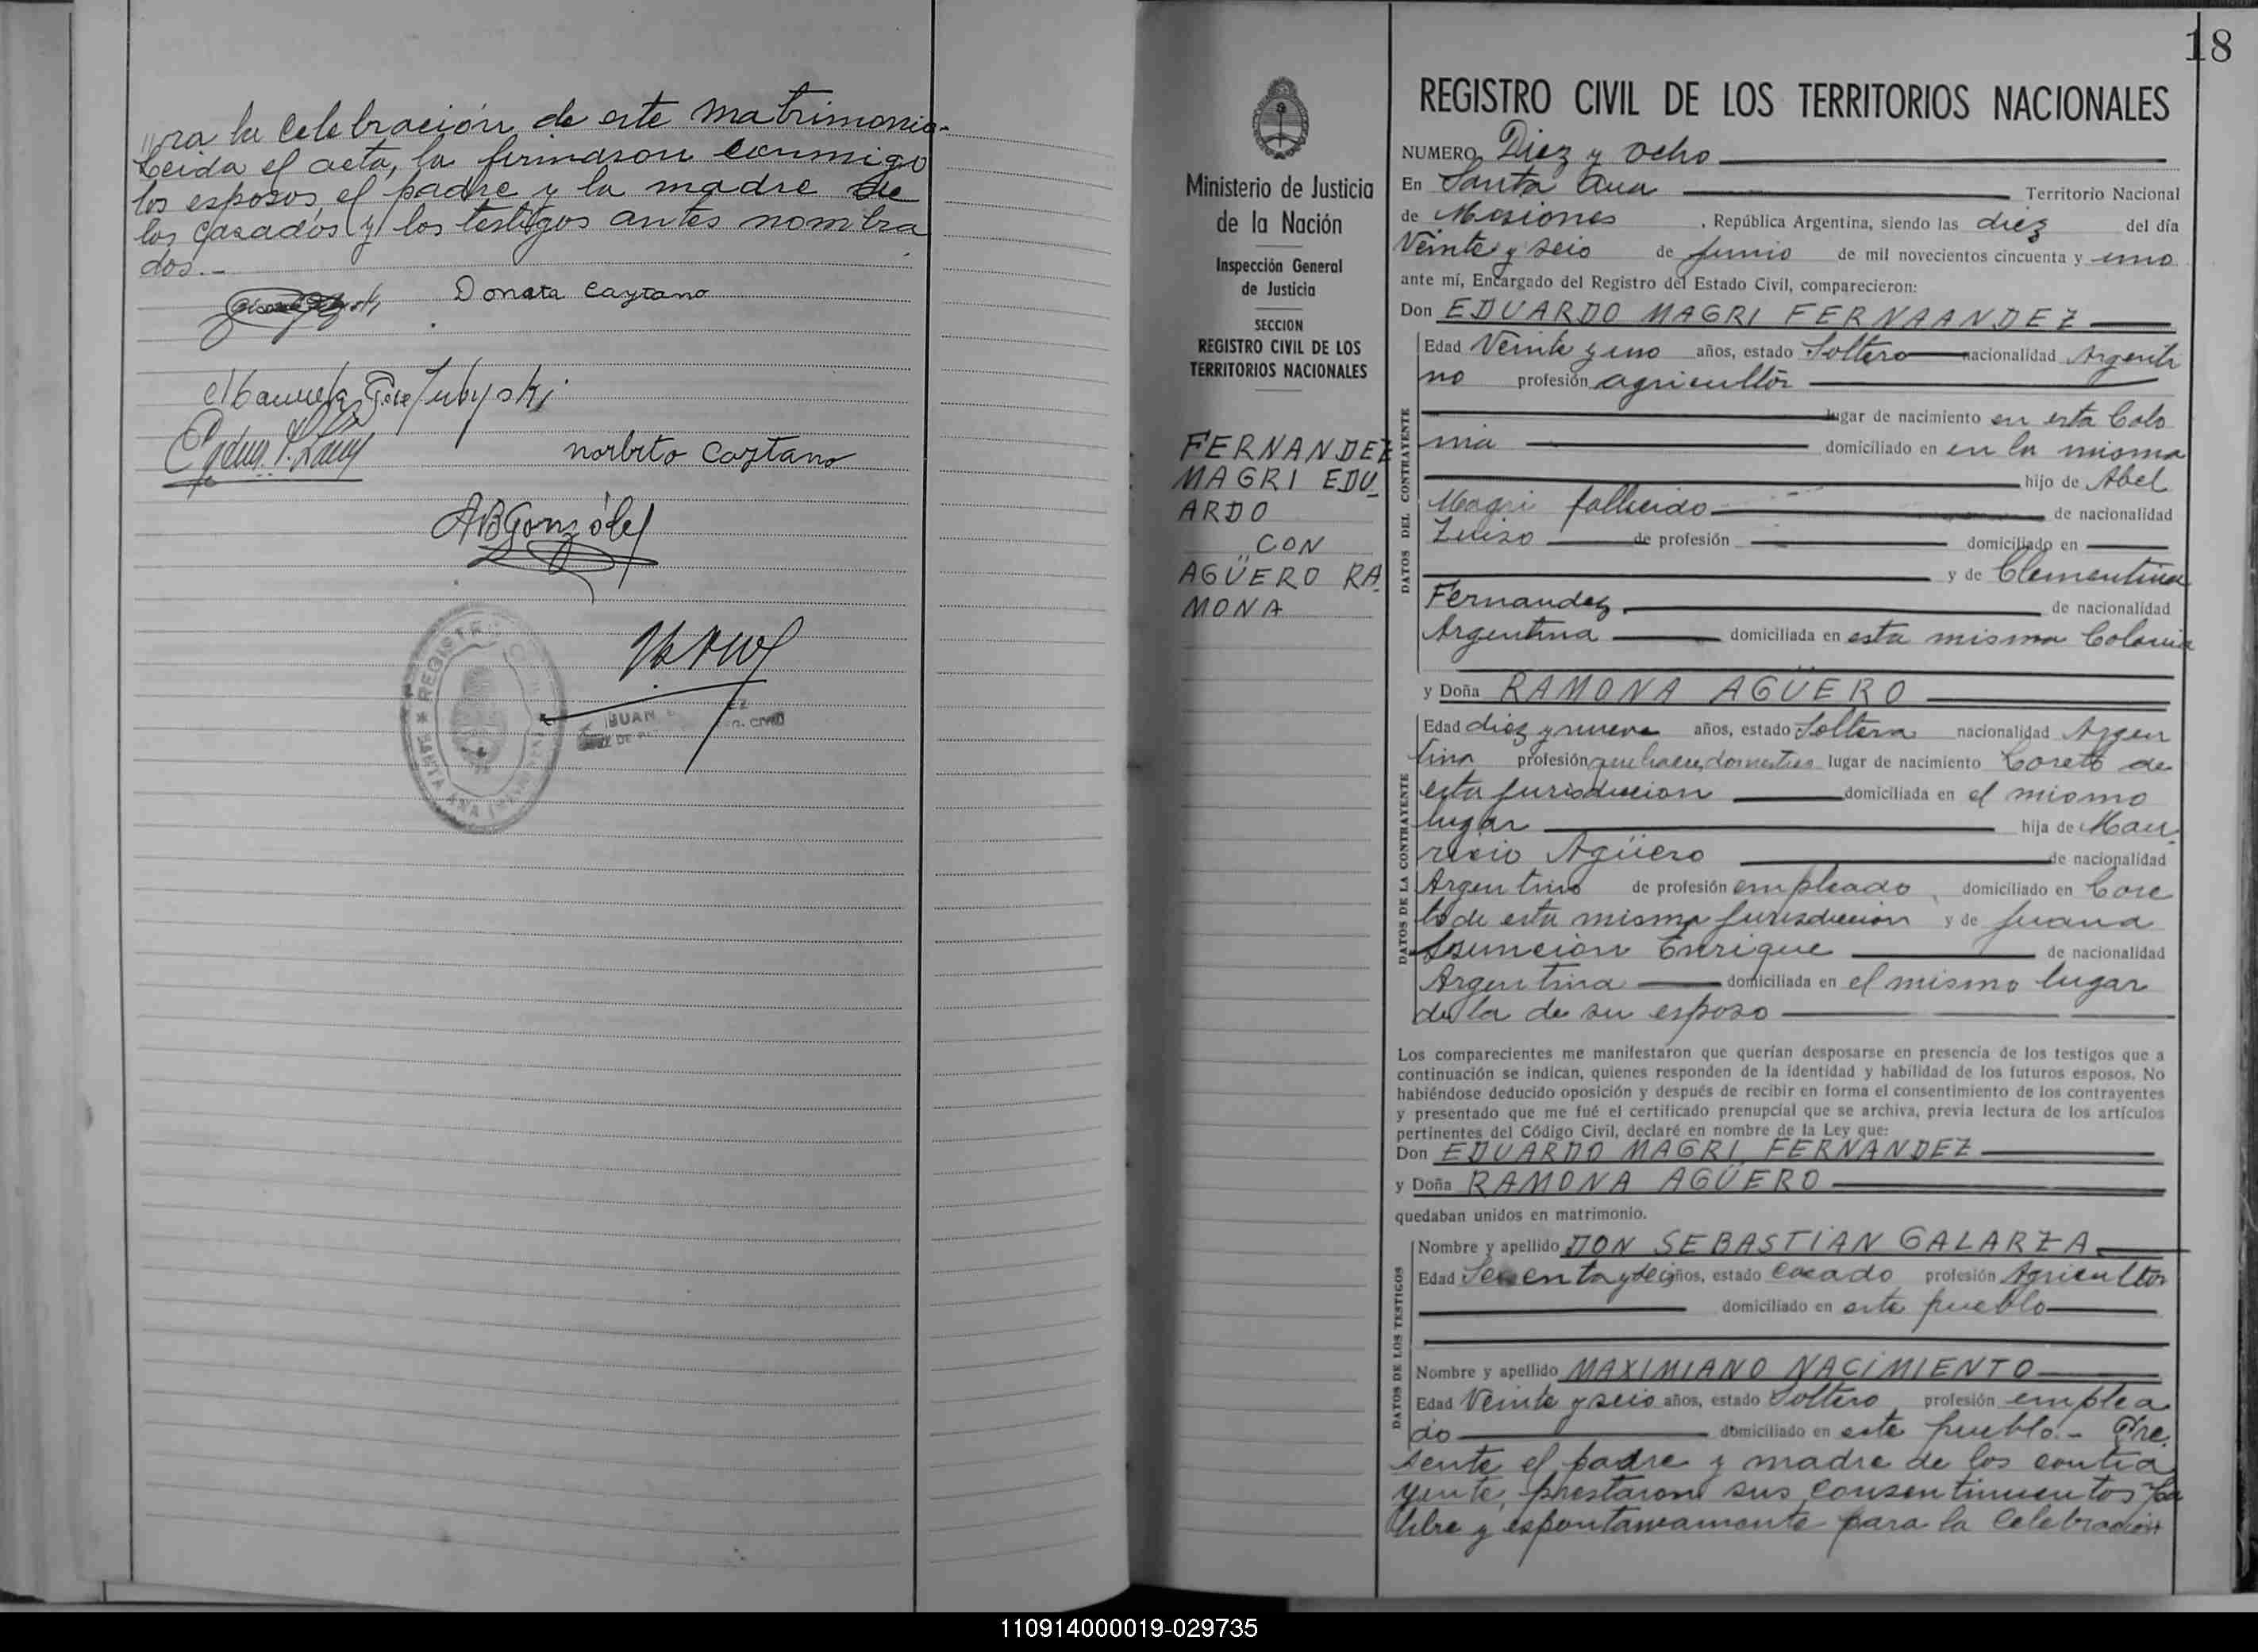 ra la celebración de este matrimonio.
Leida el acta, la firmaron conmigo
los esposos, el padre y la madre de
los casados y los testigos antes nombra
dos.-
Donata Caytano
norbito Caytano
ABGonzález
REGISTRO CIVIL
SANTA ANA
JUAN
JUEZ DE
18
REGISTRO CIVIL DE LOS TERRITORIOS NACIONALES
Ministerio de Justicia
de la Nación
Inspección General
de Justicia
SECCION
REGISTRO CIVIL DE LOS
TERRITORIOS NACIONALES
FERNANDEZ
MAGRI EDU
ARDO
CON
AGÜERO RA
MONA
NUMERO Diez y ocho
En Santa Ana Territorio Nacional
de Mosiones, República Argentina, siendo las diez del día
Veinte y seis de junio de mil novecientos cincuenta y uno
ante mí, Encargado del Registro del Estado Civil, comparecieron:
Don EDUARDO MAGRI FERNAANDEZ
DATOS DEL CONTRAYENTE
Edad Veinte y uno años, estado Soltero nacionalidad Argenti
no profesión agricultor
lugar de nacimiento en esta Colo
nia domiciliado en en la misma
hijo de Abel
Magri fallecido de nacionalidad
Zuiso de profesión domiciliado en
y de Clementina
Fernandez de nacionalidad
Argentina domiciliada en esta misma Colonia
y Doña RAMONA AGÜERO
DATOS DE LA CONTRAYENTE
Edad diez y nueve años, estado Soltera nacionalidad Argen
tina profesión quehaceres domestico lugar de nacimiento Loreto de
esta jurisdiccion domiciliada en el mismo
lugar hija de Mau
ricio Agüero de nacionalidad
Argentino de profesión empleado domiciliado en Lore
to de esta misma jurisdiccion y de Juana
Asuncion Enrique de nacionalidad
Argentina domiciliada en el mismo lugar
de la de su esposo
Los comparecientes me manifestaron que querían desposarse en presencia de los testigos que a
continuación se indican, quienes responden de la identidad y habilidad de los futuros esposos. No
habiéndose deducido oposición y después de recibir en forma el consentimiento de los contrayentes
y presentado que me fué el certificado prenupcial que se archiva, previa lectura de los artículos
pertinentes del Código Civil, declaré en nombre de la Ley que:
Don EDUARDO MAGRI FERNANDEZ
y Doña RAMONA AGÜERO
quedaban unidos en matrimonio.
DATOS DE LOS TESTIGOS
Nombre y apellido DON SEBASTIAN GALARZA
Edad años, estado casado profesión Agricultor
domiciliado en este pueblo
Nombre y apellido MAXIMIANO NACIMIENTO
Edad Veinte y seis años, estado Soltero profesión emplea
do domiciliado en este pueblo.- Pre
sente el padre y madre de los contra
yente, prestaron sus consentimientos
libre y espontaneamente para la celebración
110914000019-029735